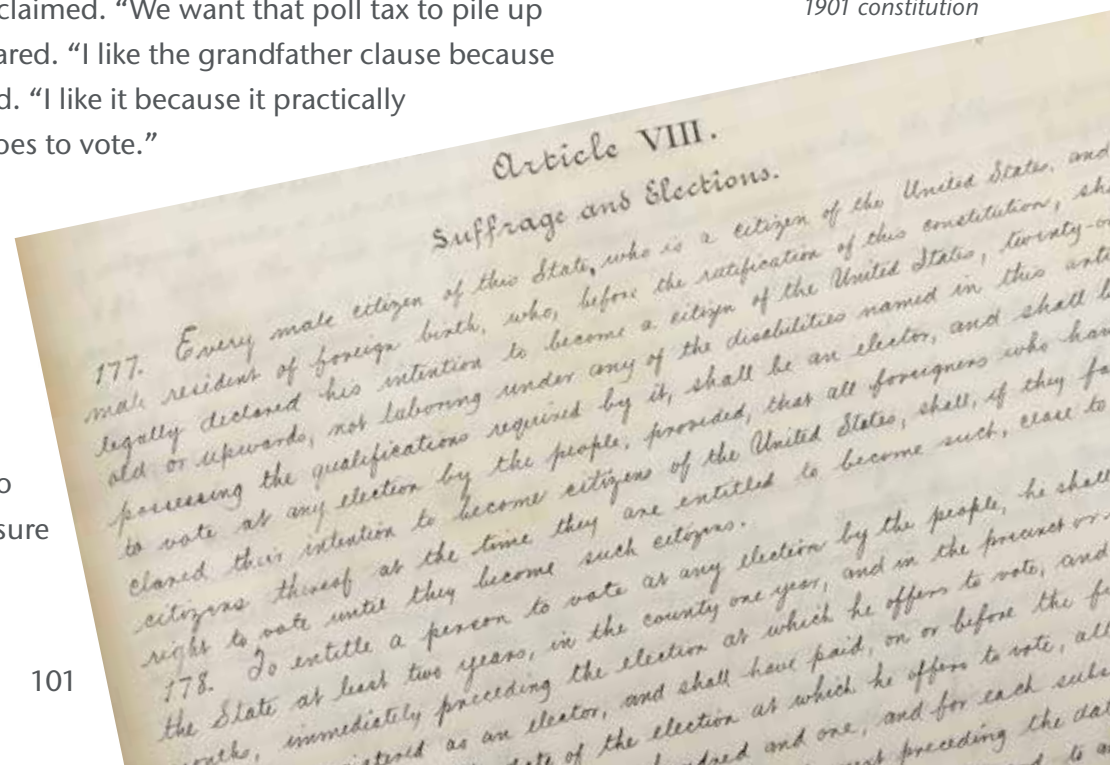 claimed. “We want that poll tax to pile up
ared. “I like the grandfather clause because
d. “I like it because it practically
oes to vote.”
1901 constitution
o
sure
101
Article VIII.
Suffrage and Elections.
177. Every male citizen of this State, who is a citizen of the United States, and
male resident of foreign birth, who, before the ratification of this constitution, sh
legally declared his intention to become a citizen of the United States, twenty-o
old or upwards, not laboring under any of the disabilities named in this arti
possessing the qualifications required by it, shall be an elector, and shall b
to vote at any election by the people, provided, that all foreigners who hav
clared their intention to become citizens of the United States, shall, if they fa
citizens thereof at the time they are entitled to become such, cease to
right to vote until they become such citizens.
178. To entitle a person to vote at any election by the people, he shall
the State at least two years, in the county one year, and in the precinct or
onths, immediately preceding the election at which he offers to vote, and
istered as an elector, and shall have paid, on or before the fi
date of the election at which he offers to vote, all
hundred and one, and for each subs
preceding the dat